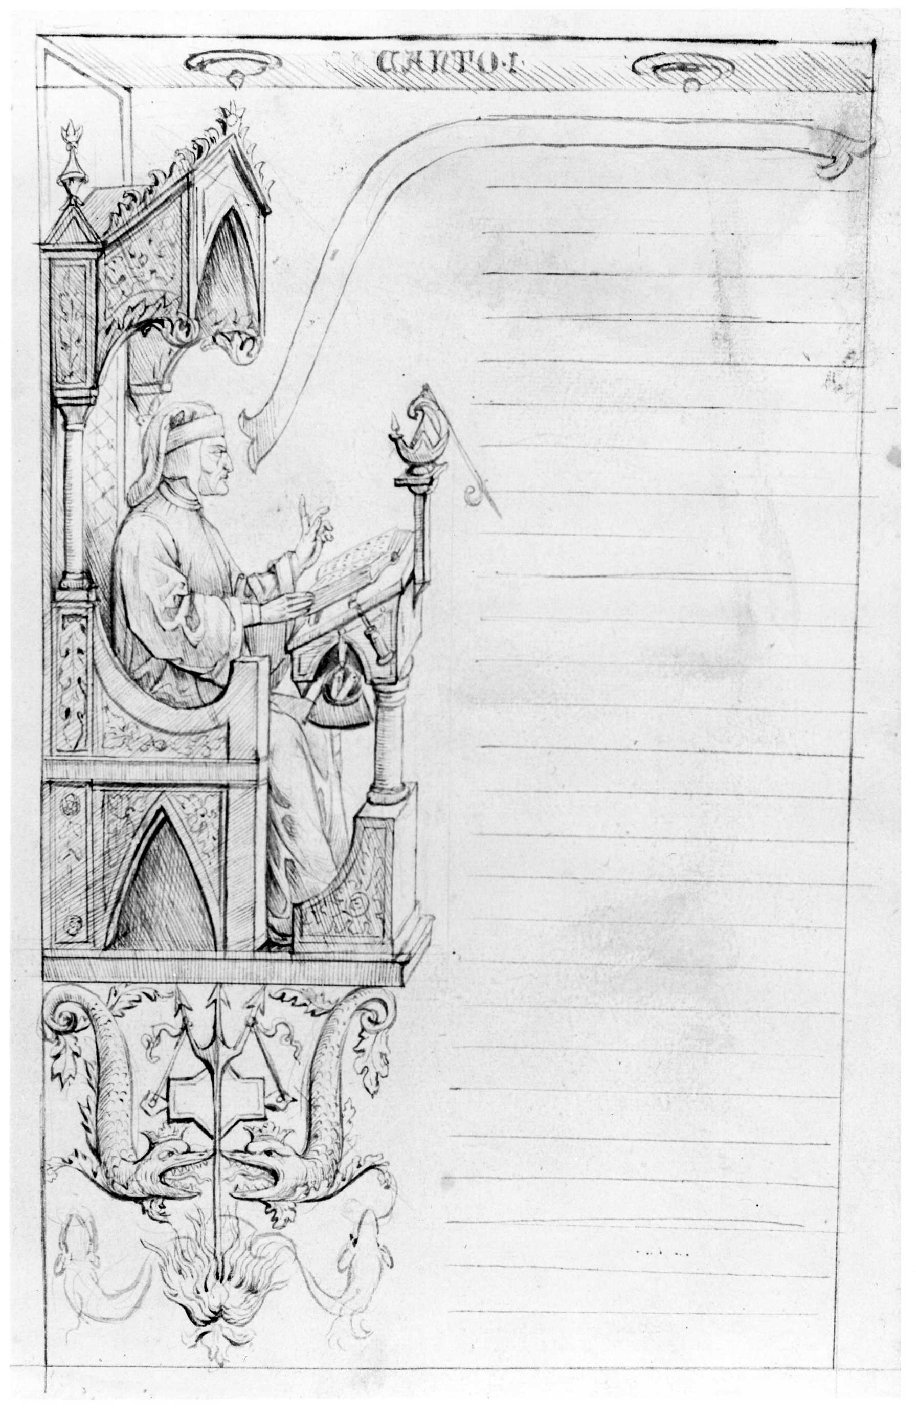 CANTO·I